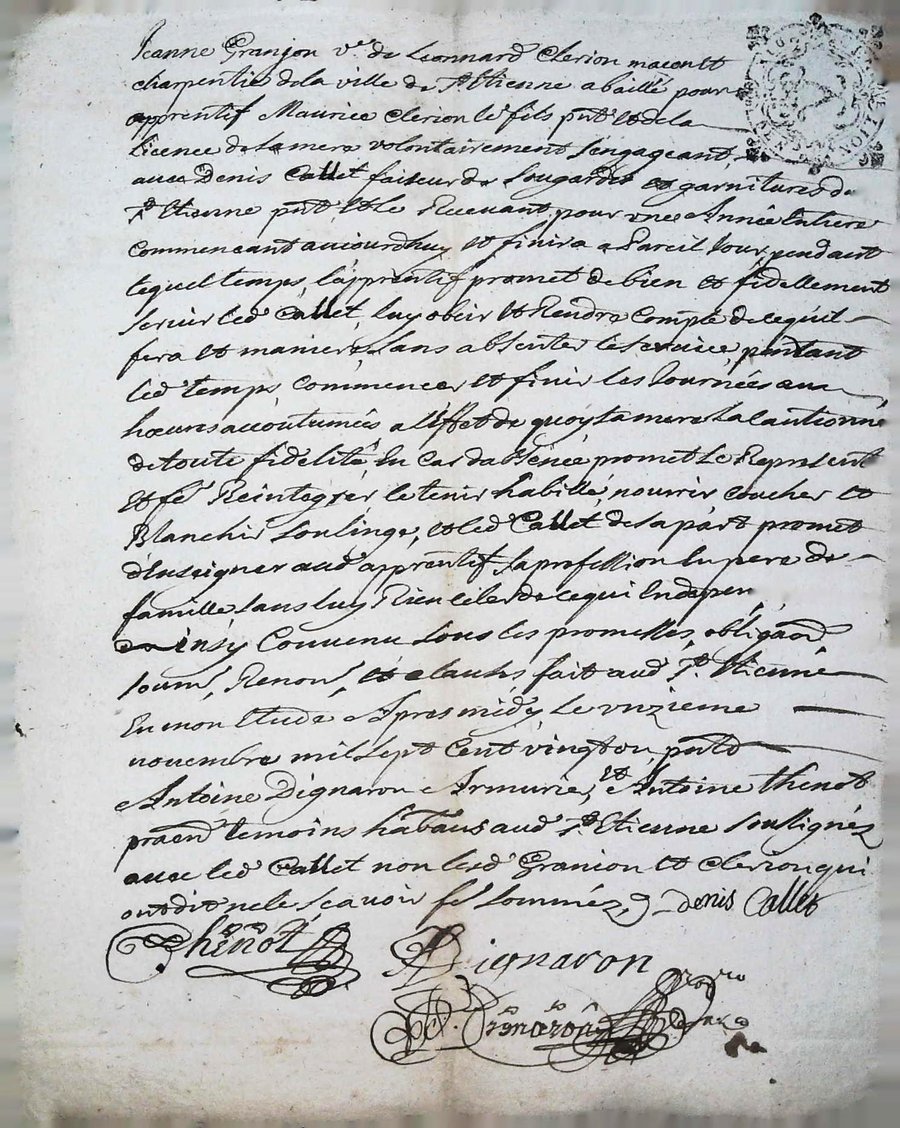 Jeanne Granjon v.ve de Leonnard Clerion macon et
charpentier de la ville de St Etienne a baillé pour
apprentif Maurice Clerion le fils pnt et de la
licence de sa mere volontairement s'engageant,
avec Denis Callet faiseur de sougardes et garnitures de
St Etienne pnt, et le Recevant pour une Année Entiere
Commencant aujourdhuy et finira a Pareil Jour, pendant
lequel temps, l'apprentif promet de bien et fidellement
servir led Callet, luy obeir et Rendre Compte de ce quil
fera et maniera, sans absenter le service, pendant
led temps, Commencer et finir les Journées aux
heures accoutumés, a l'effet de quoy sa mere la Cautionné
de toute fidelité, En Cas dabsence promet Le Represent
et fe Reintegrer le tenir habillé, nourrir coucher et
Blanchir son linge, et led Callet de sa part promet
d'Enseigner aud apprentif sa profession En pere de
famille sans luy Rien celer de ce qui En depen
Ainsy Convenu sous les promesses, obligaons
soums, Renons, et clauses fait aud St Etienne
En mon Etude Apres midy Le unzieme
novembre mil sept Cent vingt pnts
Antoine Dignaron Armurier, et Antoine Thenot
praen temoins habitans aud St Etienne soussignez
avec led Callet non lesd Granion et Clerion qui
ont dit ne le scavoir fe sommez, Denis Callet
Thenot
A Dignaron